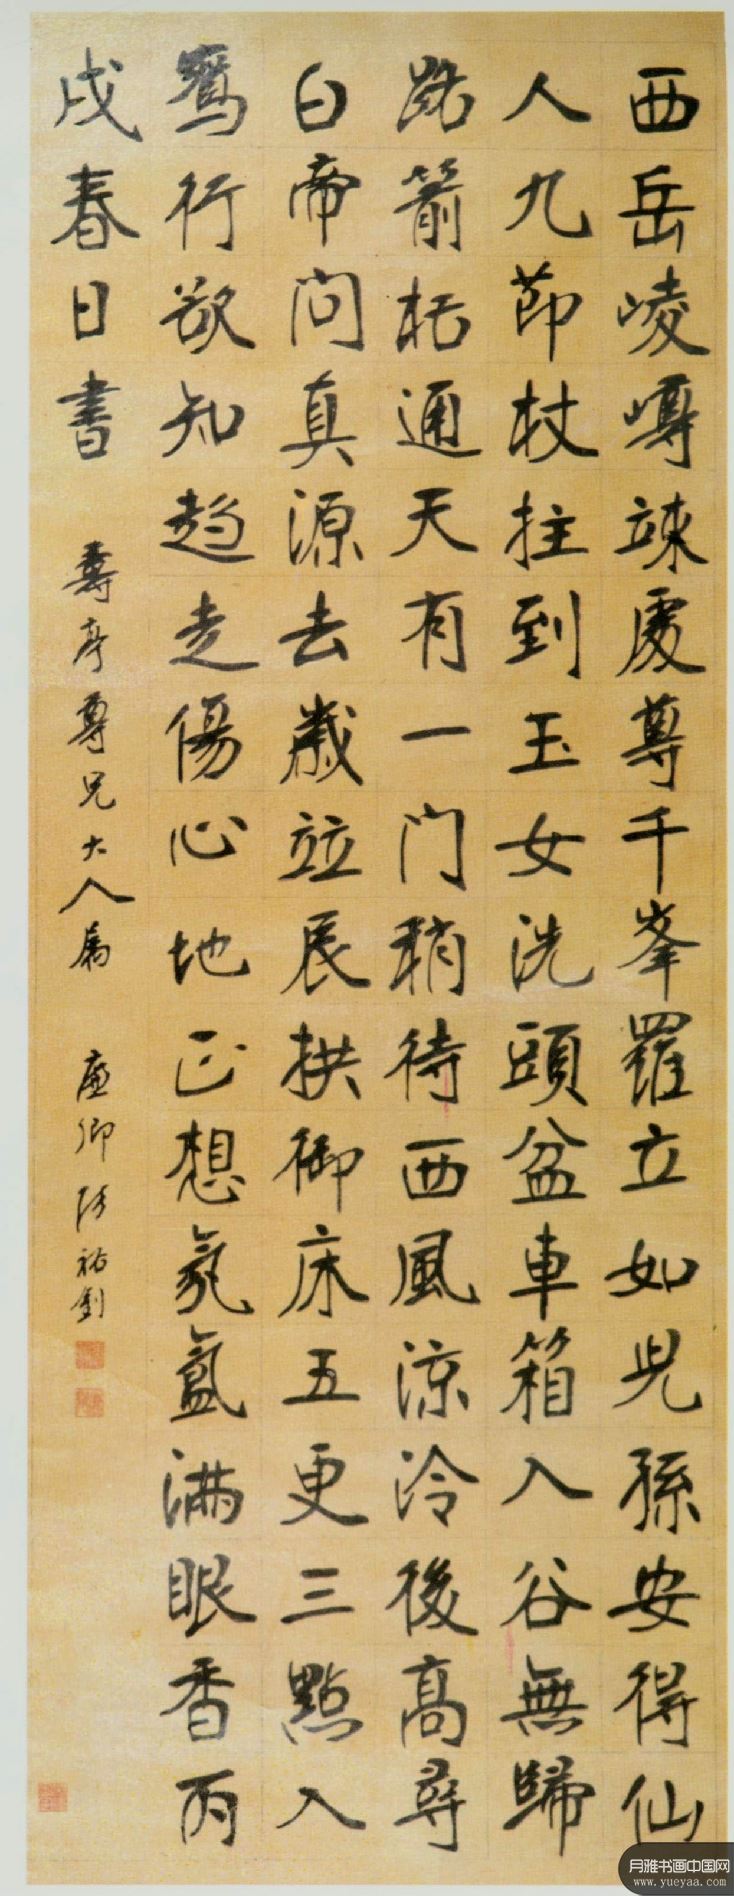 西岳崚嶒竦處尊千峯羅立如児孫安得仙
人九節杖拄到玉女洗頭盆車箱入谷無歸
路箭栝通天有一门稍待西風涼冷後高尋
白帝问真源去歲竝辰拱御床五更三點入
鵷行欲知趋走傷心地正想氛氳满眼香丙
戌春日書
壽亭尊兄大人属
廉卿張裕釗
月雅书画中国网
www.yueyaa.com